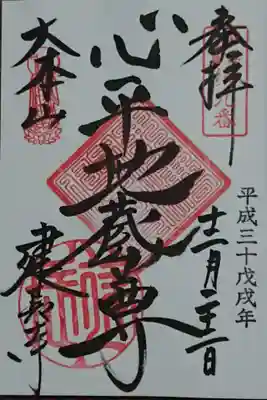 奉拝
平成三十戊戌年
十二月二十二日
心平地蔵尊
大本山
建長寺